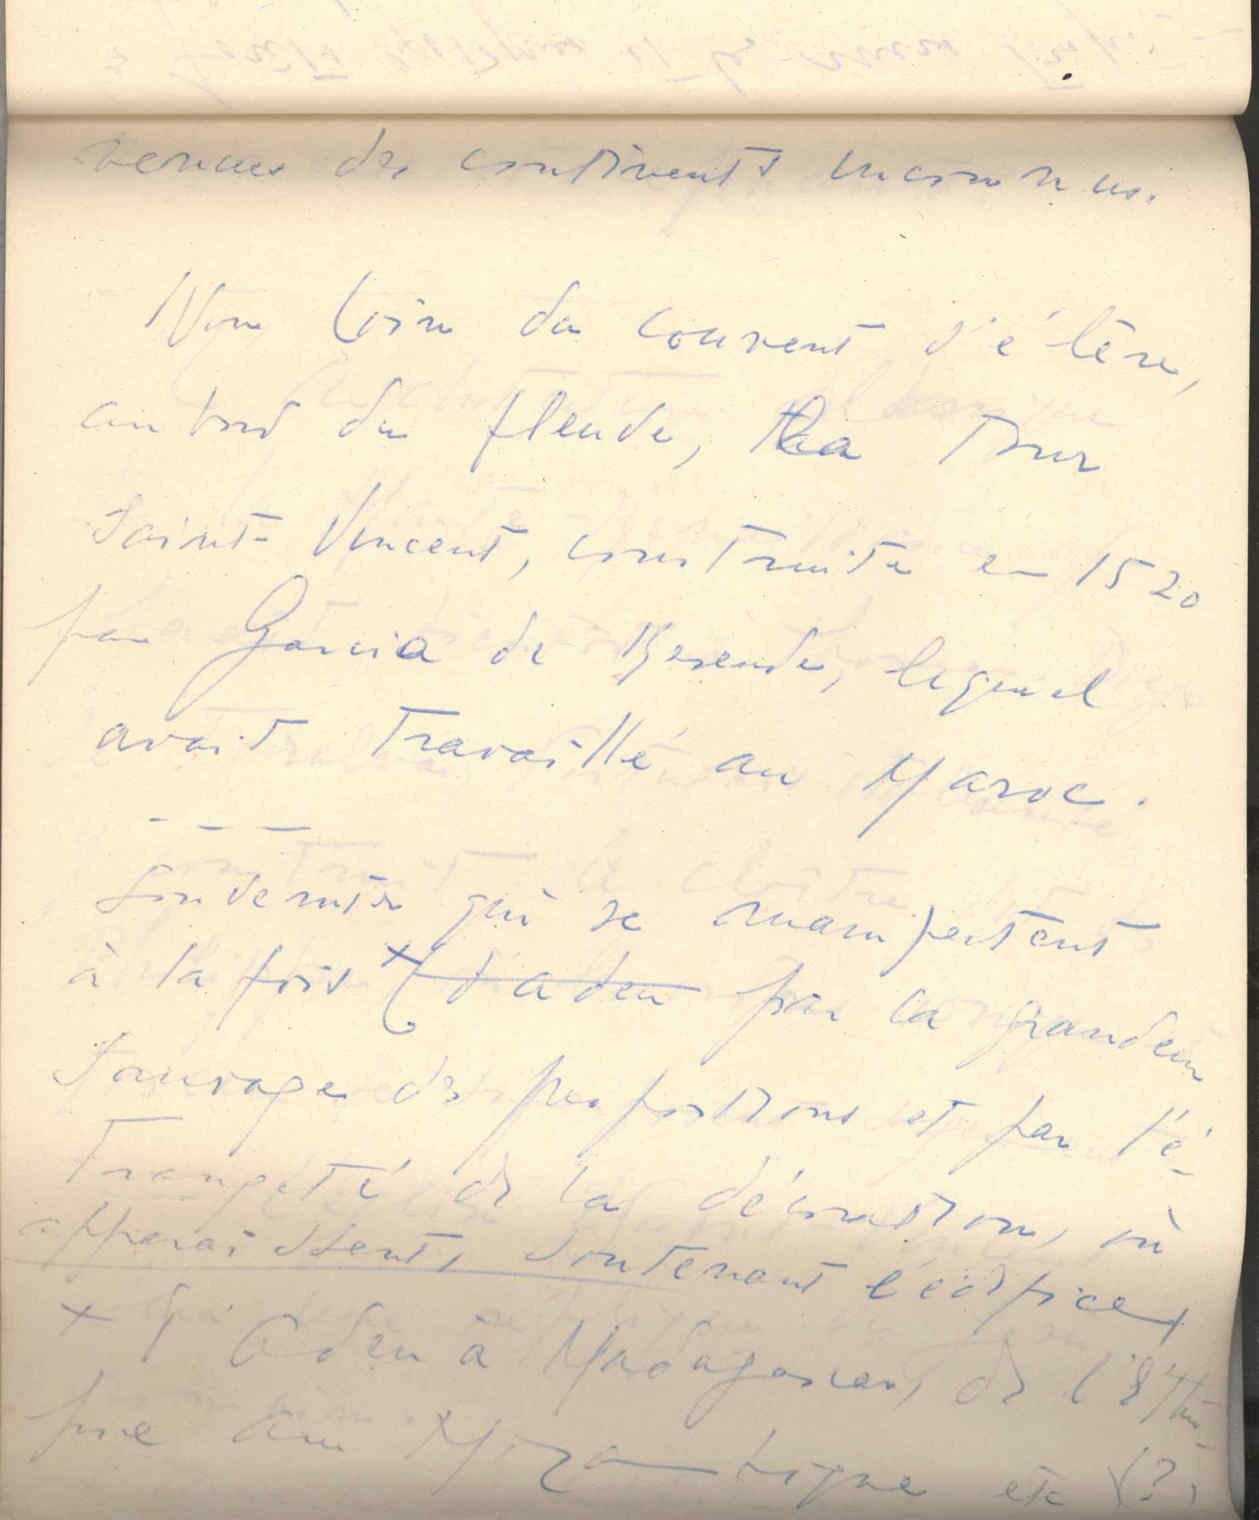 venues des continents inconnus.
Non loin du couvent s'élève,
au bord du fleuve, la Tour
Saint-Vincent, construite en 1520
par Garcia de Resende, lequel
avait travaillé au Maroc.
- - -
souvenirs qui se manifestent
à la fois x d'aden par la grandeur
sauvage des proportions et par l'é-
trangeté de la décoration, où
apparaissent, soutenant l'édifice,
x d'Aden à Madagascar, de l'Ethio-
pie au Mozambique etc (?)